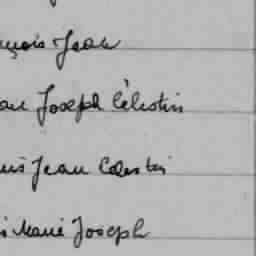 çois Jean
Joseph Célestin
Jean Célestin
Marie Joseph